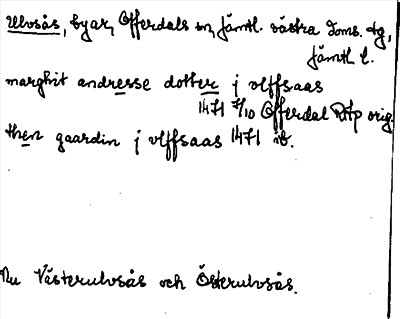 Ulvsås, byar, Offerdals sn, Jämtl. västra doms. tg,
Jämtl. l.
marghit andresse dotter j vlffsaas
1471 7/10 Offerdal RAp orig
then gaardin j vlffsaas 1471 ib.
Nu Västerulvsås och Österulvsås.